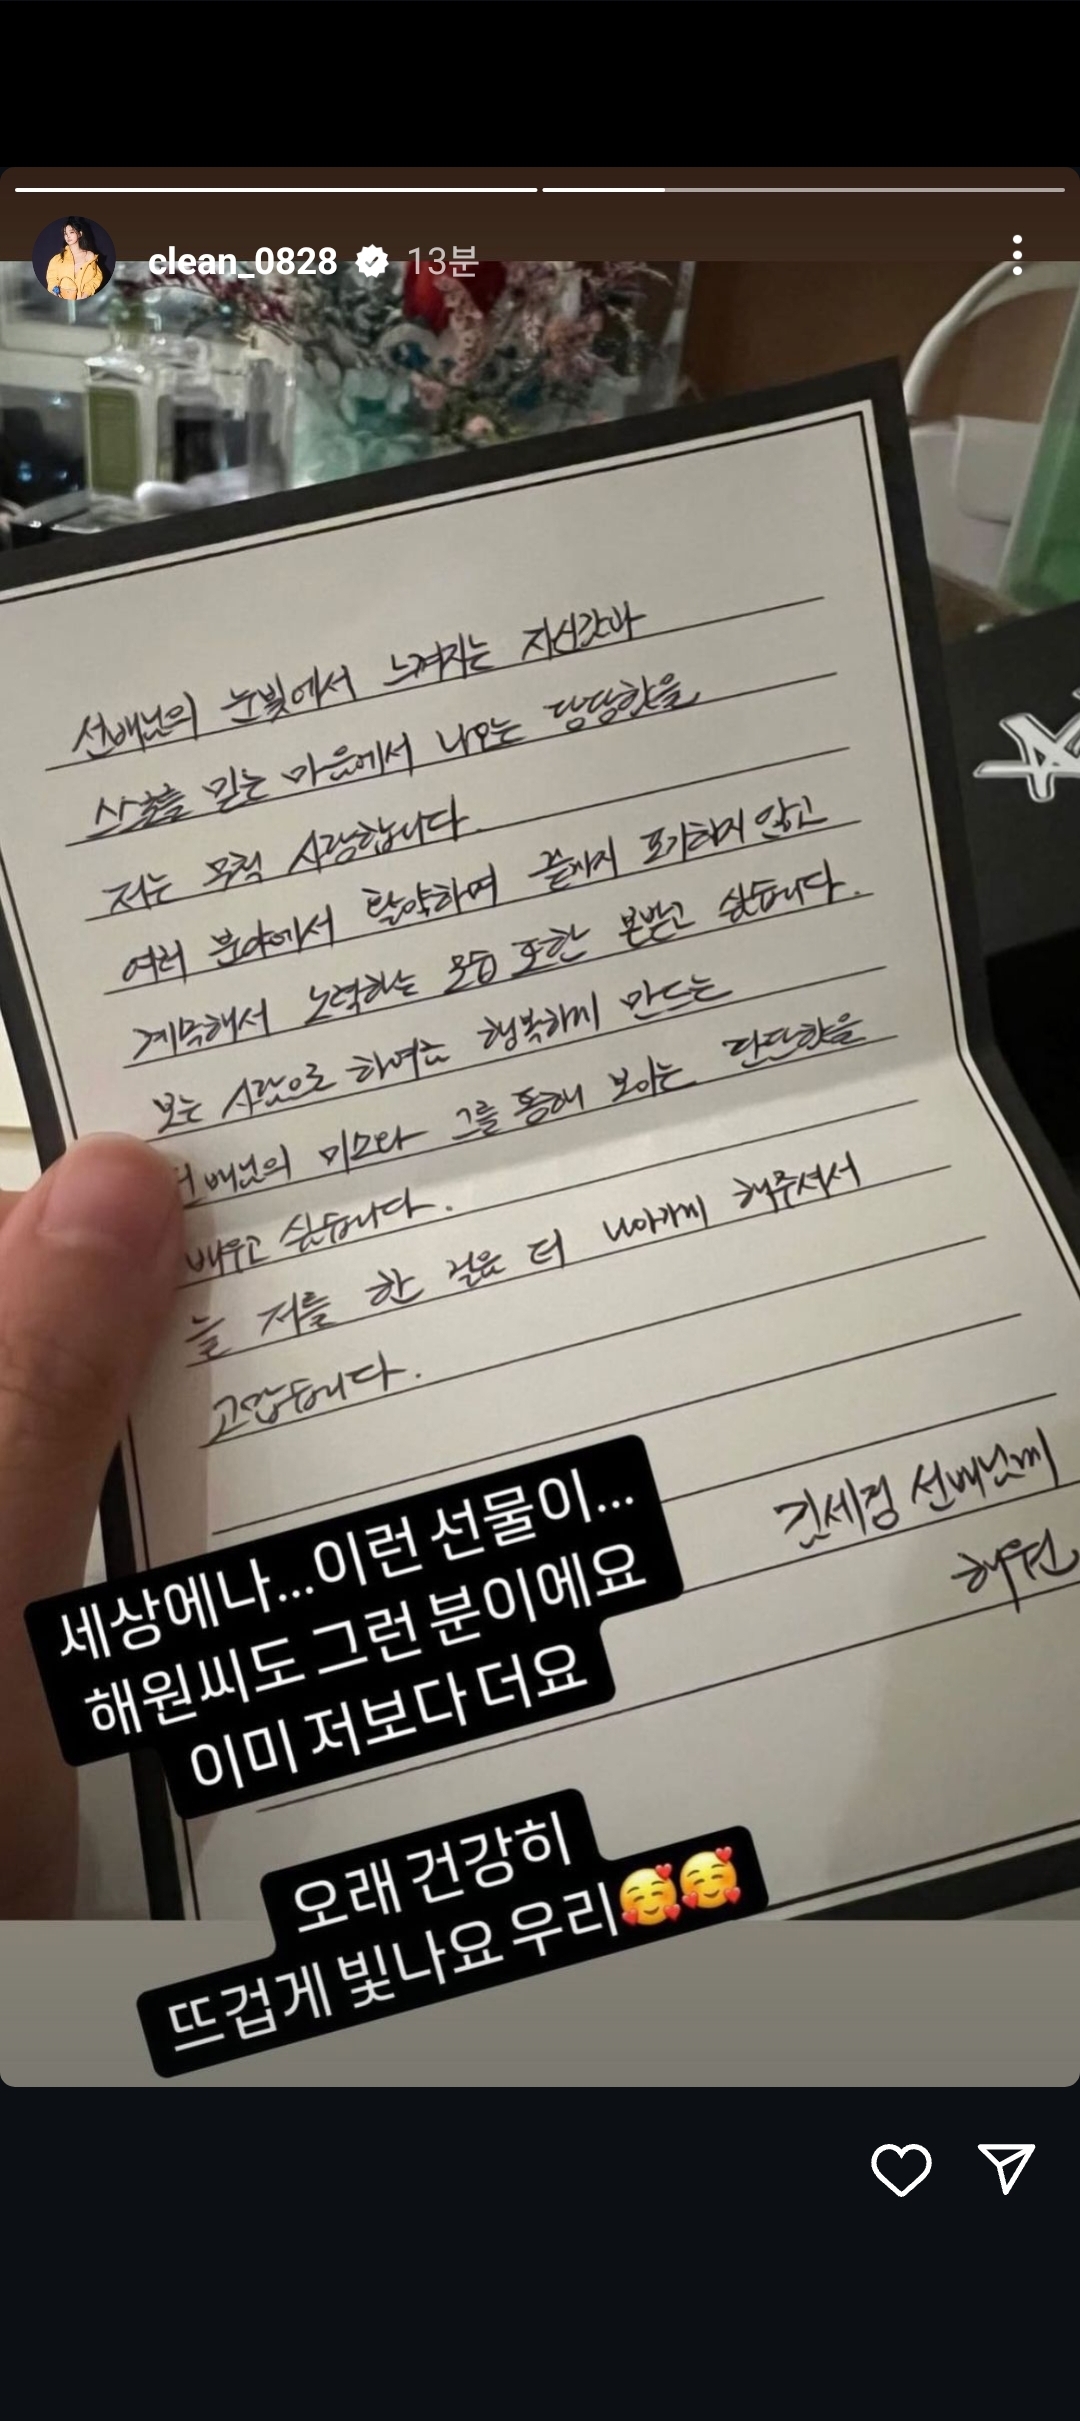 clean_0828 13분
선배님의 눈빛에서 느껴지는 자신감과
스스로를 믿는 마음에서 나오는 당당함을
저는 무척 사랑합니다.
여러 분야에서 활약하며 끝까지 포기하지 않고
계속해서 노력하는 모습 또한 본받고 싶습니다.
보는 사람으로 하여금 행복하게 만드는
선배님의 미소와 그를 통해 보이는 단단함을
배우고 싶습니다.
늘 저를 한 걸음 더 나아가게 해주셔서
고맙습니다.
김세정 선배님께
해원
세상에나...이런 선물이...
해원씨도 그런 분이에요
이미 저보다 더요
오래 건강히
뜨겁게 빛나요 우리🥰🥰